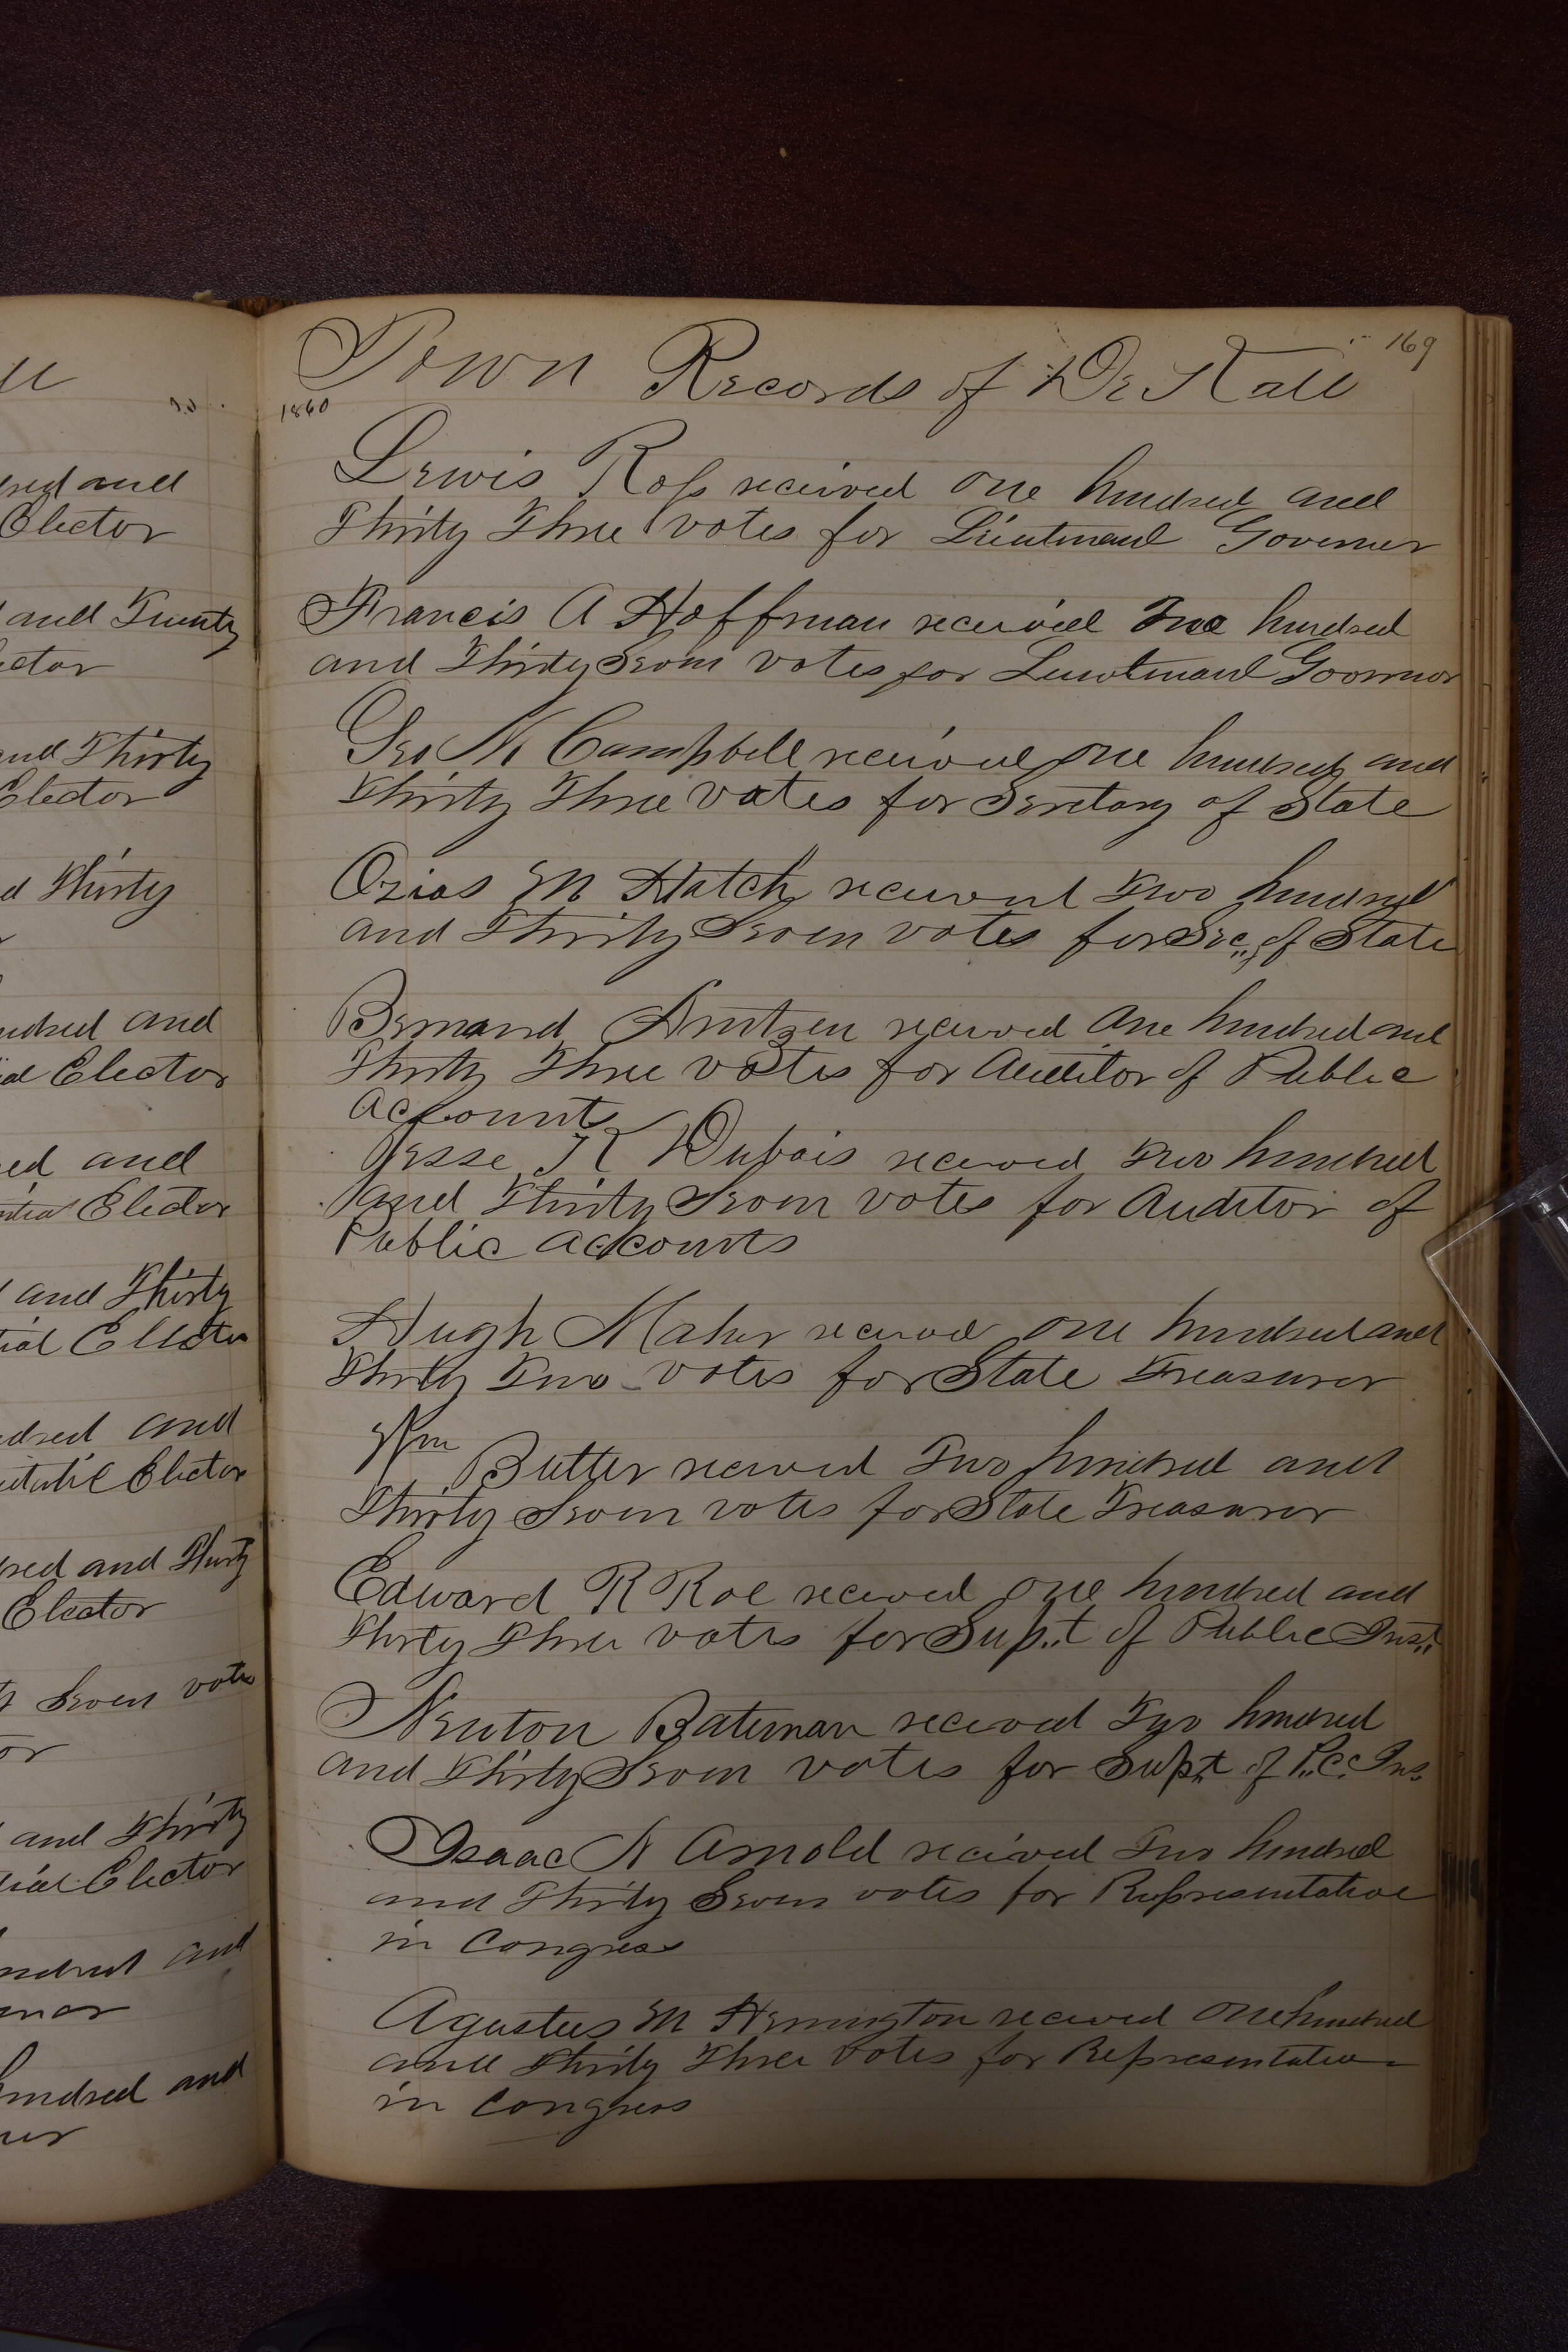 ll
red and
Elector
and Twenty
ector
and Thirty
Elector
d Thirty
r
undred and
ial Elector
ed and
Elector
and Thirty
tial Elector
dred and
Elector
dred and Thirty
Elector
ty Seven votes
or
and Thirty
tial Elector
undred and
ernor
hundred and
ner
169
Town Records of De Kalb
1860
Lewis Ross received one hundred and
Thirty Three votes for Lieutenant Governer
Francis A Hoffman received Two hundred
and Thirty Seven votes for Lieutenant Governor
Geo N Campbell received one hundred and
Thirty Three votes for Secretary of State
Ozias M Hatch received Two hundred
and Thirty Seven votes for Sec,, of State
Bernard Arntzen received one hundred and
Thirty Three votes for Auditor of Public
accounts
Jesse K Dubois received Two hundred
and Thirty Seven votes for Auditor of
Public accounts
Hugh Maher received one hundred and
Thirty Two votes for State Treasurer
Wm
Butter received Two hundred and
Thirty Seven votes for State Treasurer
Edward R Roe received one hundred and
Thirty Three votes for Sup,,t of Public Inst,,
Newton Bateman received Two hundred
and Thirty Seven votes for Sup,,t of P,,c. Ins,,
Isaac N Arnold received Two hundred
and Thirty Seven votes for Representative
in Congress
Agustus M Herrington received one hundred
and Thirty Three votes for Representative
in Congress